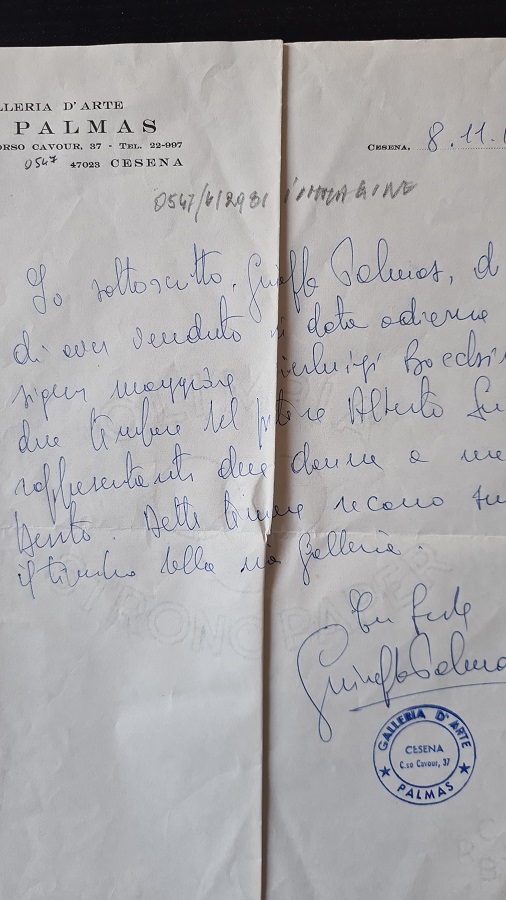 LLERIA D'ARTE
PALMAS
ORSO CAVOUR, 37 - TEL. 22-997
0547 47023 CESENA
CESENA, 8.11.
0547/612981 IMMAGINE
Io sottoscritto, Palmas, d
di aver venduto in data odierna
signor maggiore ierluigi
due tempere del pittore Alberto
rappresentanti due donne a me
Dette tempere recano
il timbro della mia Galleria.
In fede
Palma
GALLERIA D'ARTE
CESENA
C.so Cavour, 37
PALMAS